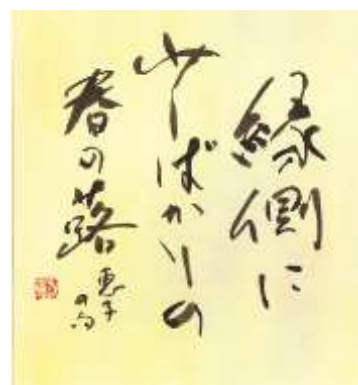 縁側に
少しばかりの
春の蕗
恵子
の句